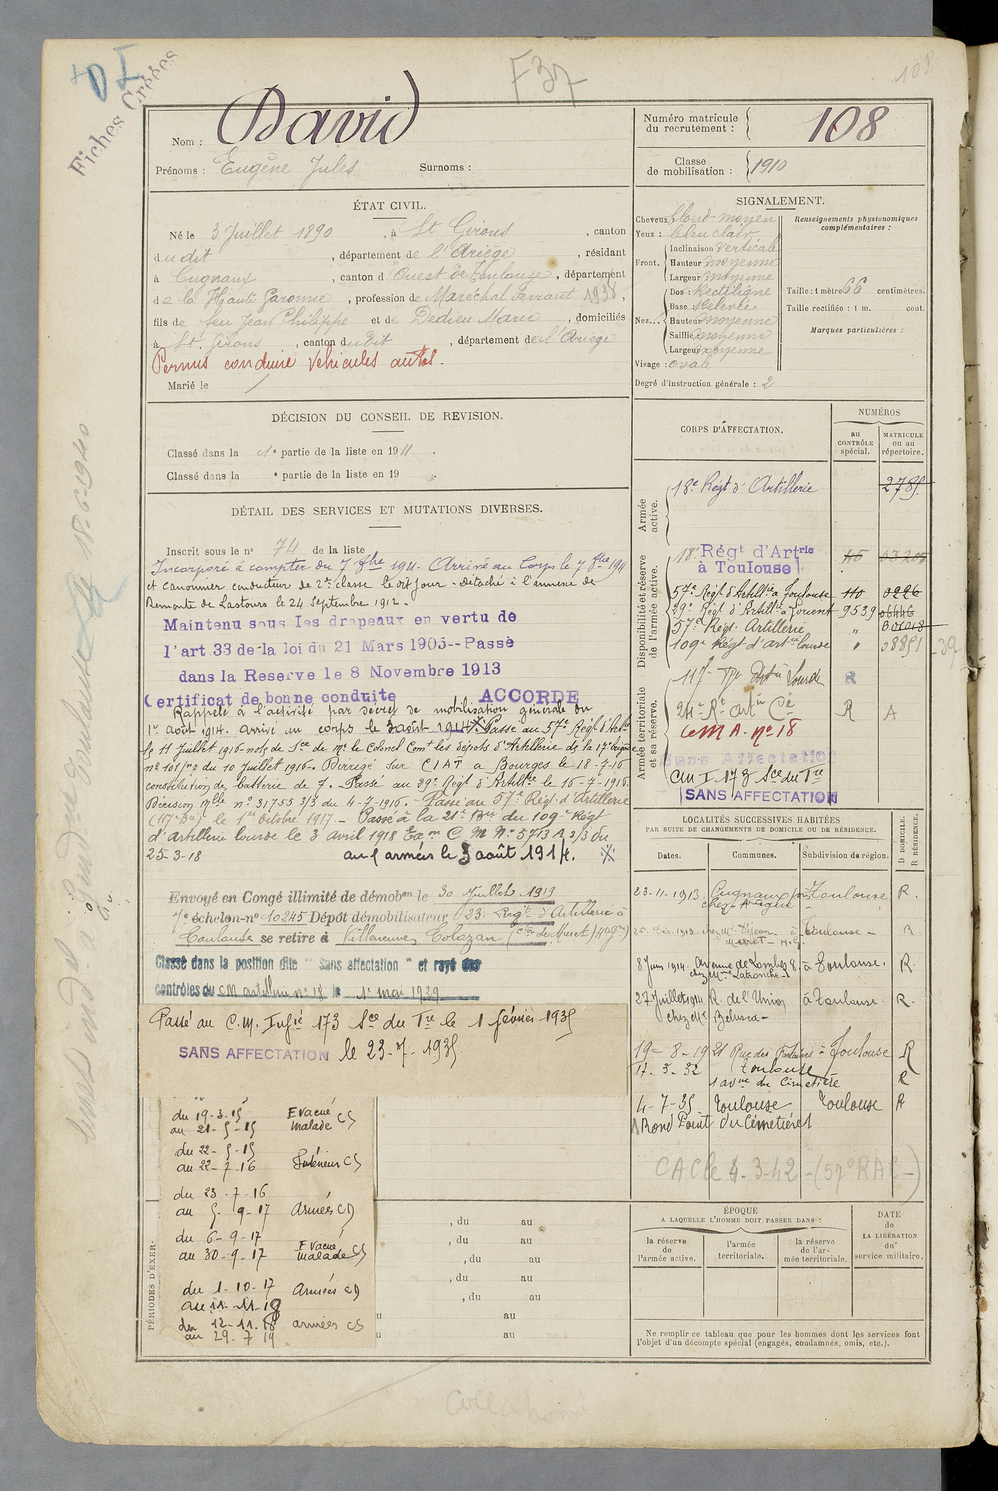 Fiches Créées
F37
108
Nom : David
Prénoms : Eugène Jules Surnoms :
Numéro matricule du recrutement : 108
Classe de mobilisation : 1910
ÉTAT CIVIL.
Né le 3 Juillet 1890, à St Girons, canton
dudit, département de l'Ariège, résidant
à Cugnaux, canton d Ouest de Toulouse, département
de la Haute Garonne, profession de Maréchal Ferrant 1938,
fils de feu Jean Philippe et de Dedieu Marie, domiciliés
à St. Girons, canton dudit, département de l'Ariège
Permis conduire Vehicules autos.
Marié le
SIGNALEMENT.
Cheveux blond moyen
Yeux : bleu clair
Front. Inclinaison verticale
Hauteur moyenne
Largeur moyenne
Nez... Dos : Rectiligne
Base : Relevée
Hauteur moyenne
Saillie moyenne
Largeur moyenne
Visage : ovale
Degré d'instruction générale : 2
Renseignements physionomiques complémentaires :
Taille : 1 mètre 66 centimètres.
Taille rectifiée : 1 m. cent.
Marques particulières :
DÉCISION DU CONSEIL DE REVISION.
Classé dans la 1e partie de la liste en 1911.
Classé dans la e partie de la liste en 19 .
DÉTAIL DES SERVICES ET MUTATIONS DIVERSES.
Inscrit sous le n° 74 de la liste
Incorporé à compter du 7 8bre 1911. Arrivé au Corps le 7 8bre 1911
et canonnier conducteur de 2e classe le dit jour - détaché à l'annexe de
Remonte de Lastours le 24 Septembre 1912.
Maintenu sous les drapeaux en vertu de
l'art 33 de la loi du 21 Mars 1905--Passé
dans la Reserve le 8 Novembre 1913
Certificat de bonne conduite ACCORDE
Rappelé à l'activité par décret de mobilisation générale du
1er août 1914. arrivé au corps le 3 août 1914 Passé au 57e Régt d'Art
le 11 Juillet 1916 note de Sce de Mr le Colonel Comt les dépots d'Artillerie de la 17e
n° 101 du 10 Juillet 1916. Dirigé sur CIAT à Bourges le 18-7-16
constitution de batterie de 7. Passé au 29e Régt d'Artillie le 16-7-1916
Décision mlle n° 31755 3/3 du 4-7-1916. - Passé au 57e Régt d'Artillerie
(117e Bie) le 1er Octobre 1917 - Passé à la 21e Bie du 109e Régt
d'Artillerie lourde le 3 avril 1918 Ex on C M N° 5713 A 3/3 du
25-3-18
aux armées le 3 août 1914.
Envoyé en Congé illimité de démobon le 30 Juillet 1919
7e échelon - n° 10245 Dépôt démobilisateur 23e Regt d'Artillerie à
Toulouse se retire à Villeneuve
Classé dans la position dite "Sans affectation" et rayé des
contrôles du CM artillerie n° 18 le 1er mai 1929
Passé au C.M. Infie 173 Sce du Tre le 1 février 1935
SANS AFFECTATION le 23-7-1935
du 19-3-15 au 21-5-15 Evacué malade CS
du 22-5-15 au 22-7-16 Intérieur CS
du 23-7-16 au 5-9-17 Armées CD
du 6-9-17 au 30-9-17 Evacué malade CS
du 1-10-17 au 11-11-18 Armées CD
du 12-11-18 au 29-7-19 armées CS
PÉRIODES D'EXER-
, du au
, du au
, du au
, du au
, du au
u au
u au
CORPS D'AFFECTATION.
NUMÉROS
au CONTRÔLE spécial.
MATRICULE ou au répertoire.
Armée active.
18e Régt d'Artillerie 2785
Disponibilité et réserve de l'armée active.
18e Régt d'Artrie à Toulouse
57e Régt d'Artillie à Toulouse
29e Régt d'Artillie à Lorient 9539 06446
57e Régt Artillerie "
109e Régt d'artie lourde "
Armée territoriale et sa réserve.
R A
CM A. n° 18
Sans Affectation
CM I 173 Sce du Tre
SANS AFFECTATION
LOCALITÉS SUCCESSIVES HABITÉES
PAR SUITE DE CHANGEMENTS DE DOMICILE OU DE RÉSIDENCE.
Dates. Communes. Subdivision de région. D DOMICILE. R RÉSIDENCE.
23-11-1913 Cugnaux Toulouse R.
Muret Toulouse - R.
8 Juin 1914. Avenue de Lombez 8. à Toulouse. R.
27 Juillet 1914 R. de l'Union à Toulouse. R.
19-8-19 21 Rue des Toulouse R
17-3-32 Toulouse
1 avue du Cimetière R
4-7-35 Toulouse Toulouse R
1 Rond Point du Cimetière
CAC le 4-3-42 - (57e RAC -)
ÉPOQUE
A LAQUELLE L'HOMME DOIT PASSER DANS :
la réserve de l'armée active.
l'armée territoriale.
la réserve de l'armée territoriale.
DATE de LA LIBÉRATION du service militaire.
Ne remplir ce tableau que pour les hommes dont les services font
l'objet d'un décompte spécial (engagés, condamnés, omis, etc.).